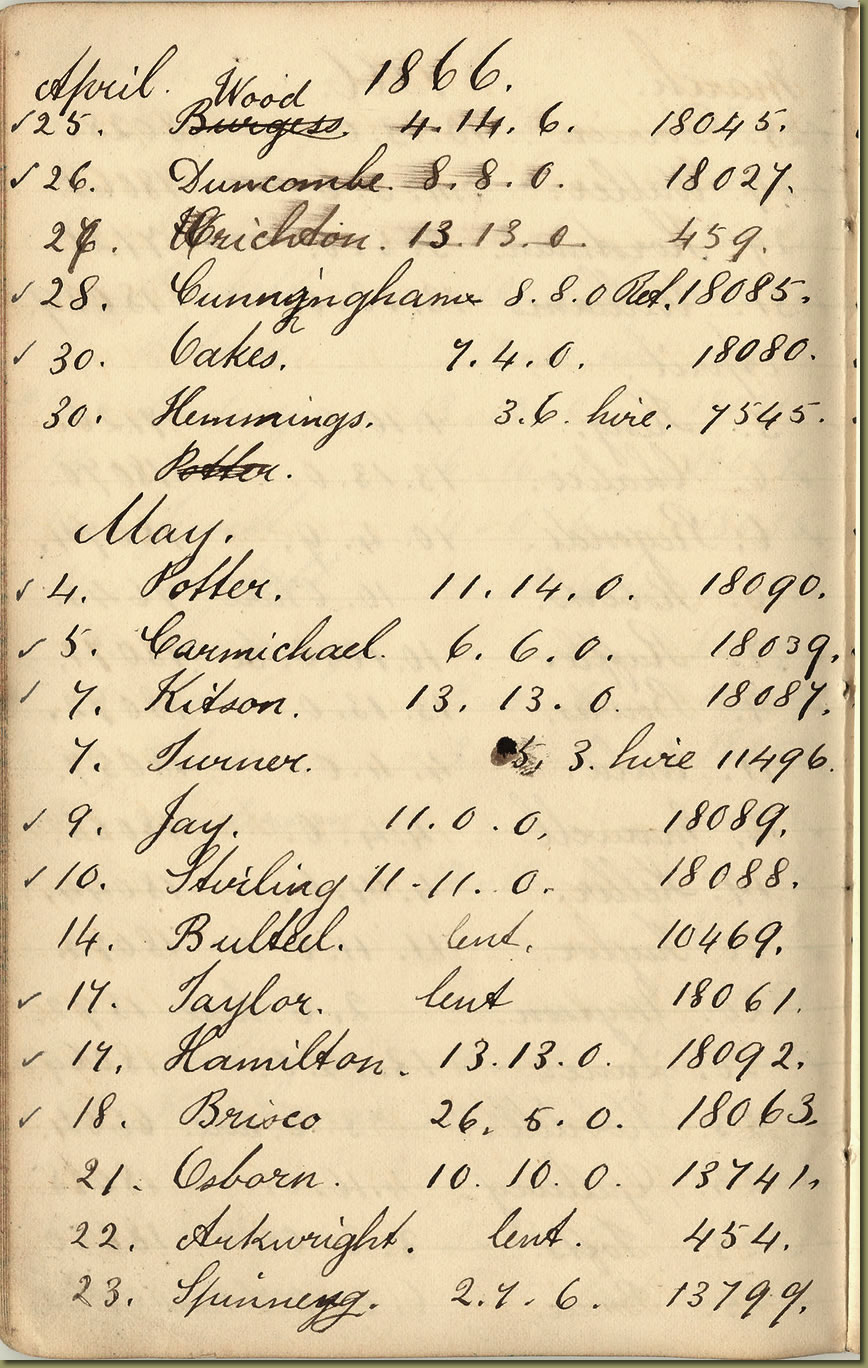 April. 1866.
Wood
✓ 25. Burgess. 4. 14. 6. 18045.
✓ 26. Duncombe. 8. 8. 0. 18027.
26. Crichton. 13. 13. 0. 459.
✓ 28. Cunningham 8. 8. 0 Ret. 18085.
✓ 30. Oakes. 7. 4. 0. 18080.
30. Hemmings. 3. 6. hire. 7545.
Potter.
May.
✓ 4. Potter. 11. 14. 0. 18090.
✓ 5. Carmichael. 6. 6. 0. 18039.
✓ 7. Kitson. 13. 13. 0. 18087.
7. Turner. 5. 3. hire 11496.
✓ 9. Jay. 11. 0. 0. 18089.
✓ 10. Stirling 11. 11. 0. 18088.
14. Bulteel. lent. 10469.
✓ 17. Taylor. lent 18061.
✓ 17. Hamilton. 13. 13. 0. 18092.
✓ 18. Brisco 26. 5. 0. 18063.
21. Osborn. 10. 10. 0. 13741.
22. Arkwright. lent. 454.
23. Spinney. 2. 7. 6. 13799.